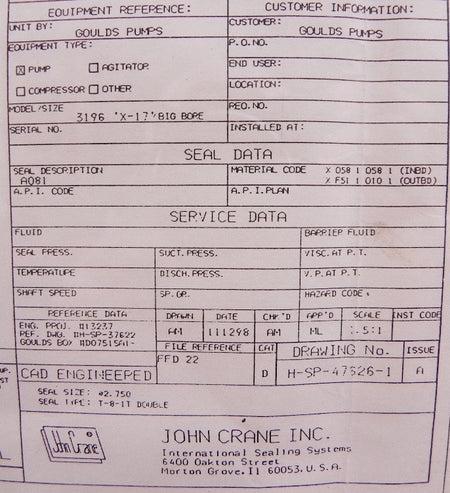 EQUIPMENT REFERENCE: CUSTOMER INFORMATION:
UNIT BY: GOULDS PUMPS CUSTOMER: GOULDS PUMPS
EQUIPMENT TYPE: P.O.NO.
X PUMP AGITATOR END USER:
COMPRESSOR OTHER LOCATION:
MODEL/SIZE 3196 'X-17' BIG BORE REQ.NO.
SERIAL NO. INSTALLED AT:
SEAL DATA
SEAL DESCRIPTION MATERIAL CODE X 058 1 058 1 (INBD)
A081 X F51 1 010 1 (OUTBD)
A.P.I. CODE A.P.I.PLAN
SERVICE DATA
FLUID BARRIER FLUID
SEAL PRESS. SUCT.PRESS. VISC.AT P.T.
TEMPERATURE DISCH.PRESS. V.P.AT P.T.
SHAFT SPEED SP.GR. HAZARD CODE:
REFERENCE DATA DRAWN DATE CHK'D APP'D SCALE INST CODE
ENG. PROJ. #13237 AM 111298 AM ML
REF. DWG. #H-SP-37622
GOULDS BOX
FILE REFERENCE CAT DRAWING No. ISSUE
FFD 22 D H-SP-47626-1 A
CAD ENGINEERED
SEAL SIZE: ø2.750
SEAL TYPE: T-8-1T DOUBLE
John Crane
JOHN CRANE INC.
International Sealing Systems
6400 Oakton Street
Morton Grove.Il 60053.U.S.A.